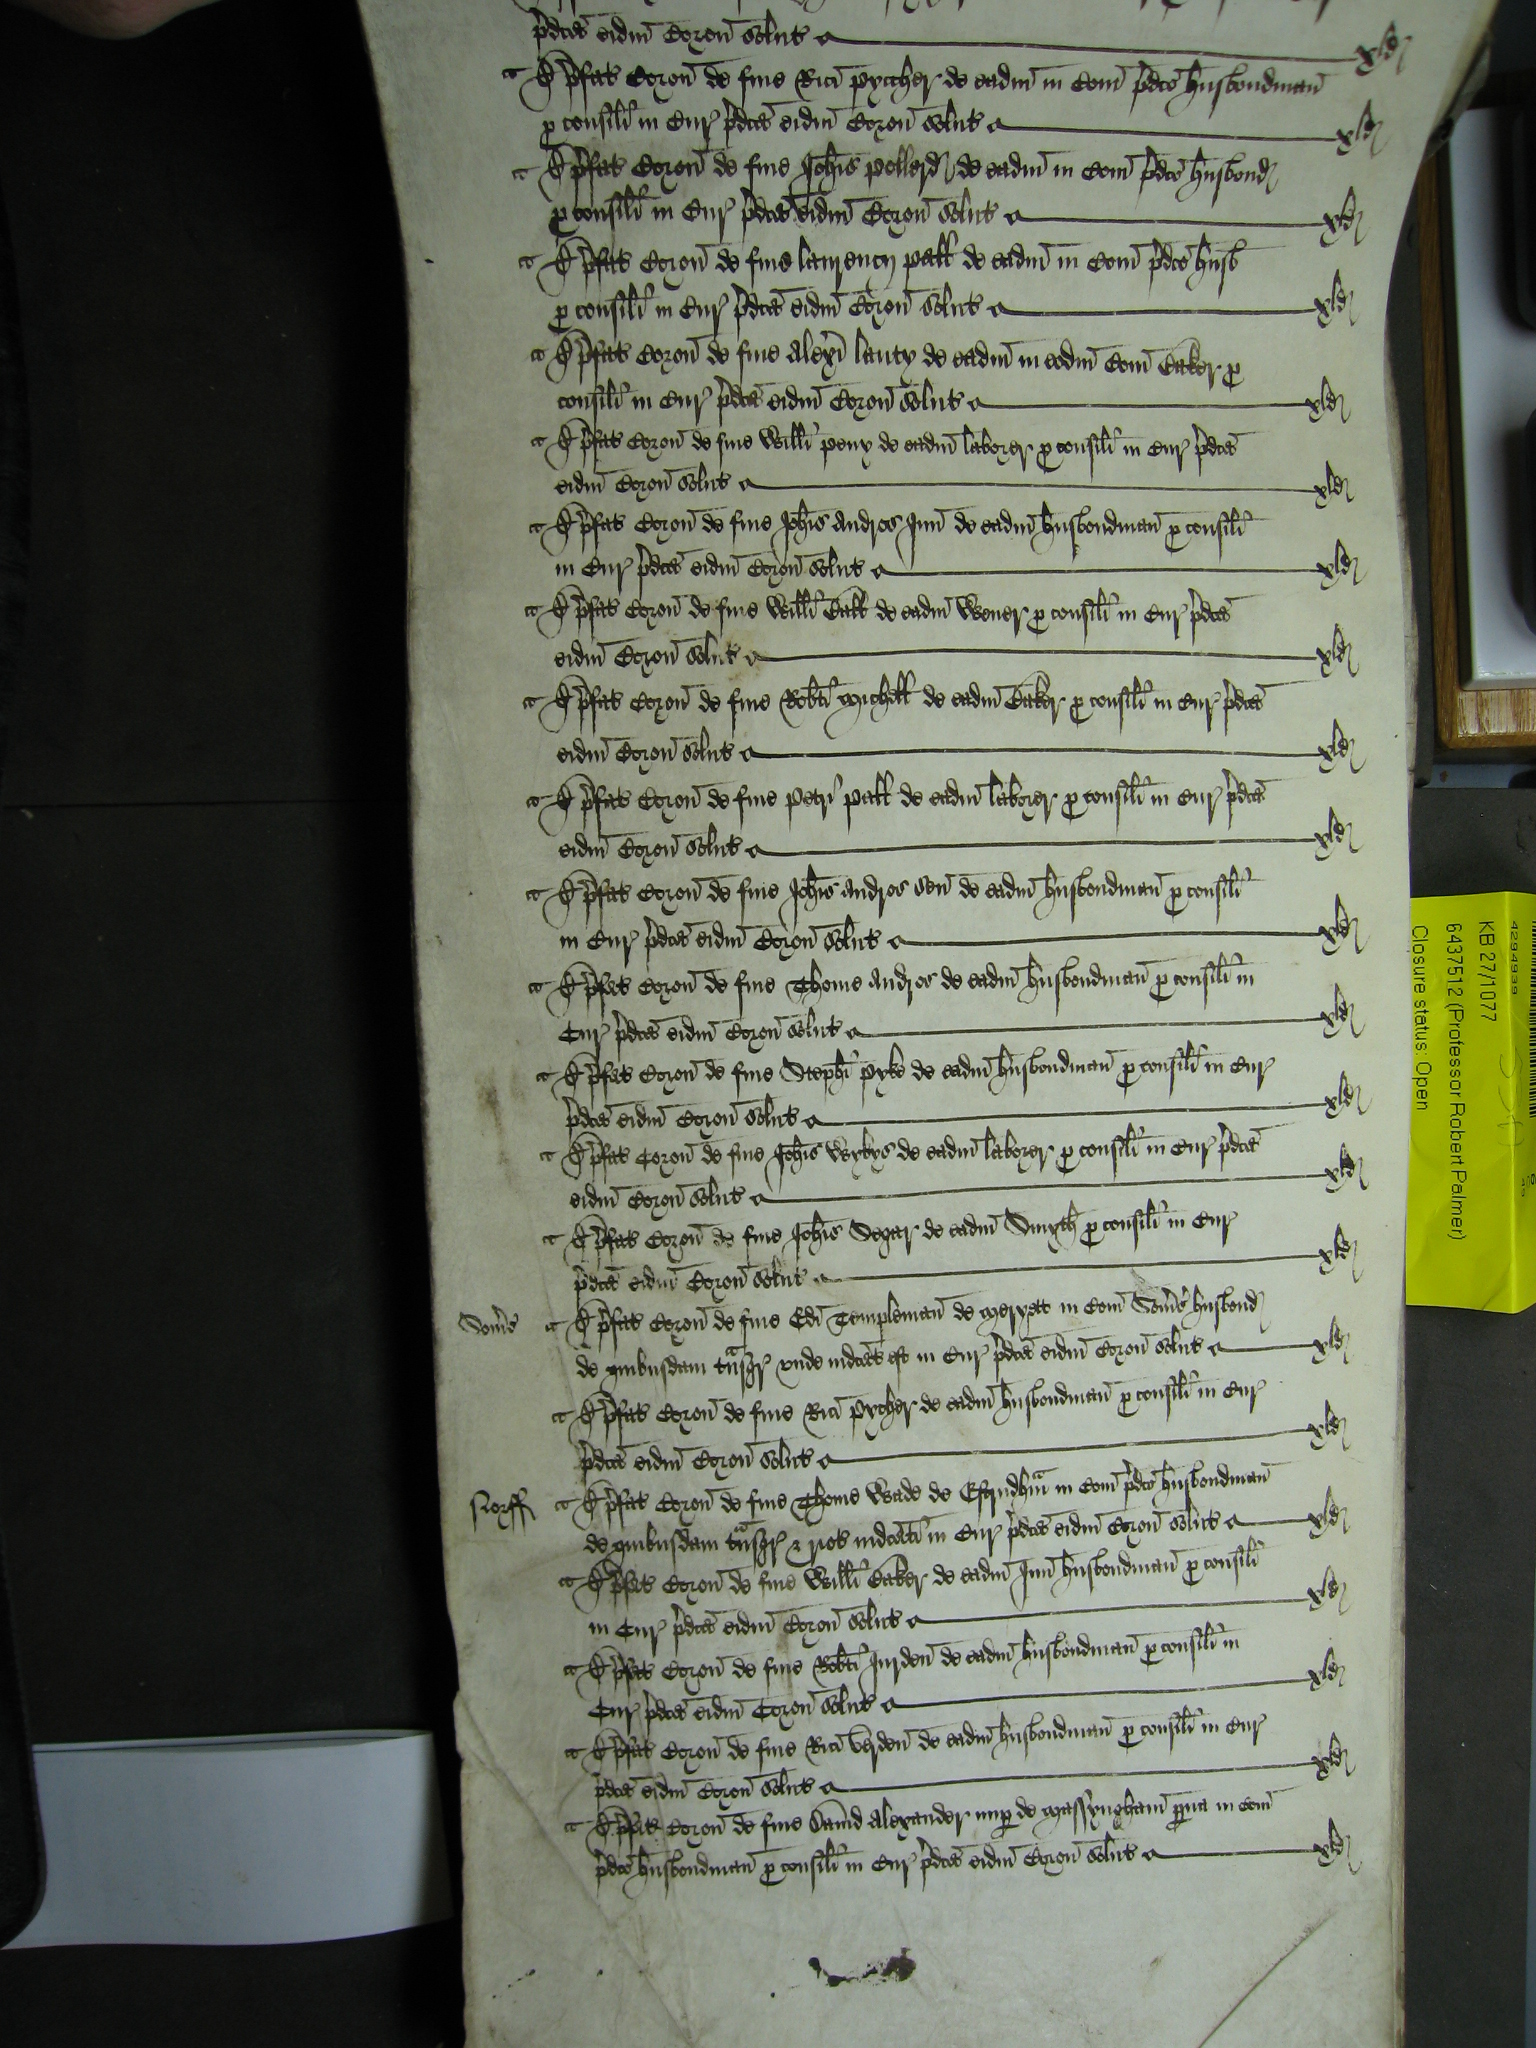 p̄dc̄as eidm̄ Coron̄ solut xld
D p̄fat̄ Coron̄ de fine Ric̄i pyccher de eadm̄ in Com̄ p̄dc̄o husbondman̄
p consilī in Cur p̄dc̄as eidm̄ Coron̄ solut xld
D p̄fat̄ Coron̄ de fine Joh̄is pollerd de eadm̄ in Com̄ p̄dc̄o husbond
p consilī in Cur p̄dc̄as eidm̄ Coron̄ solut xld
D p̄fat̄ Coron̄ de fine laurencij patt de eadm̄ in Com̄ p̄dc̄o husb
p consilī in Cur p̄dc̄as eidm̄ Coron̄ solut xld
D p̄fat̄ Coron̄ de fine Alex̄i lauty de eadm̄ in eodm̄ Com̄ Baker p
consilī in Cur p̄dc̄as eidm̄ Coron̄ solut xld
D p̄fat̄ Coron̄ de fine Willī peny de eadm̄ laborer p consilī in Cur p̄dc̄as
eidm̄ Coron̄ solut xld
D p̄fat̄ Coron̄ de fine Joh̄is Andros Jun̄ de eadm̄ husbondman̄ p consilī
in Cur p̄dc̄as eidm̄ Coron̄ solut xld
D p̄fat̄ Coron̄ de fine Willī Batt de eadm̄ Wever p consilī in Cur p̄dc̄as
eidm̄ Coron̄ solut xld
D p̄fat̄ Coron̄ de fine Rob̄ti Michell de eadm̄ Baker p consilī in Cur p̄dc̄as
eidm̄ Coron̄ solut xld
D p̄fat̄ Coron̄ de fine Petri patt de eadm̄ laborer p consilī in Cur p̄dc̄as
eidm̄ Coron̄ solut xld
D p̄fat̄ Coron̄ de fine Joh̄is Andros Sen̄ de eadm̄ husbondman̄ p consilī
in Cur p̄dc̄as eidm̄ Coron̄ solut xld
D p̄fat̄ Coron̄ de fine Thome Andros de eadm̄ husbondman̄ p consilī in
Cur p̄dc̄as eidm̄ Coron̄ solut xld
D p̄fat̄ Coron̄ de fine Steph̄i pyke de eadm̄ husbondman̄ p consilī in Cur
p̄dc̄as eidm̄ Coron̄ solut xld
D p̄fat̄ Coron̄ de fine Joh̄is Wykys de eadm̄ laborer p consilī in Cur p̄dc̄as
eidm̄ Coron̄ solut xld
D p̄fat̄ Coron̄ de fine Joh̄is Segar de eadm̄ Smyth p consilī in Cur
p̄dc̄as eidm̄ Coron̄ solut xld
Som̄s D p̄fat̄ Coron̄ de fine Ed̄i Templeman̄ de Meryett in Com̄ Som̄s husbond
de quibusdam tn̄sgr unde indc̄at̄ est in Cur p̄dc̄as eidm̄ Coron̄ solut xld
D p̄fat̄ Coron̄ de fine Ric̄i pycher de eadm̄ husbondman̄ p consilī in Cur
p̄dc̄as eidm̄ Coron̄ solut xld
Norff D p̄fat̄ Coron̄ de fine Thome Wade de in Com̄ p̄dc̄o husbondman̄
de quibusdam tn̄sgr & riot indc̄at̄ in Cur p̄dc̄as eidm̄ Coron̄ solut xld
D p̄fat̄ Coron̄ de fine Willī Baker de eadm̄ Jun̄ husbondman̄ p consilī
in Cur p̄dc̄as eidm̄ Coron̄ solut xld
D p̄fat̄ Coron̄ de fine Rob̄ti Jurden̄ de eadm̄ husbondman̄ p consilī in
Cur p̄dc̄as eidm̄ Coron̄ solut xld
D p̄fat̄ Coron̄ de fine Ric̄i de eadm̄ husbondman̄ p consilī in Cur
p̄dc̄as eidm̄ Coron̄ solut xld
D p̄fat̄ Coron̄ de fine Alexander nup de Massyngham p̄ua in Com̄
p̄dc̄o husbondman̄ p consilī in Cur p̄dc̄as eidm̄ Coron̄ solut xld
4294939
KB 27/1077
6437512 (Professor Robert Palmer)
Closure status: Open